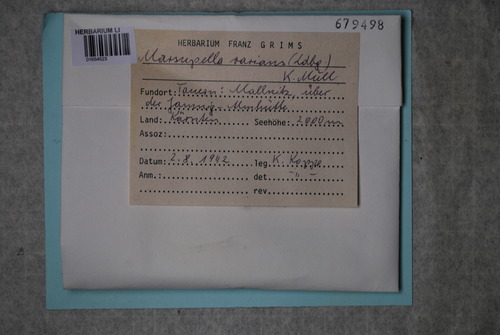 679498
HERBARIUM LI
HERBARIUM FRANZ GRIMS
Marsupella varians (Ldbg)
K. Müll
Fundort: Tauern: Mallnitz, über
der Jamnig-Almhütte
Land: Kärnten Seehöhe: 2000m
Assoz:
Datum: 2.8.1942 leg. K.
Anm.: det. -"-
rev.